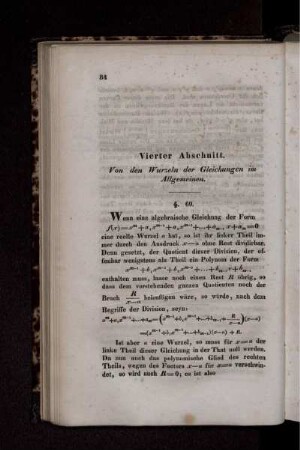 84
Vierter Abschnitt.
Von den Wurzeln der Gleichungen im
Allgemeinen.
§. 60.
Wenn eine algebraische Gleichung der Form
eine reelle Wurzel a hat, so ist ihr linker Theil im-
mer durch den Ausdruck x—a ohne Rest dividirbar.
Denn gesetzt, der Quotient dieser Division, der of-
fenbar wenigstens als Theil ein Polynom der Form
enthalten muss, lasse noch einen Rest R übrig, so
dass dem vorstehenden ganzen Quotienten noch der
Bruch R/x—a beizufügen wäre, so würde, nach dem
Begriffe der Division, seyn:
Ist aber a eine Wurzel, so muss für x=a der
linke Theil dieser Gleichung in der That null werden.
Da nun auch das polynomische Glied des rechten
Theils, wegen des Factors x—a für x=a verschwin-
det, so wird auch R=0; es ist also